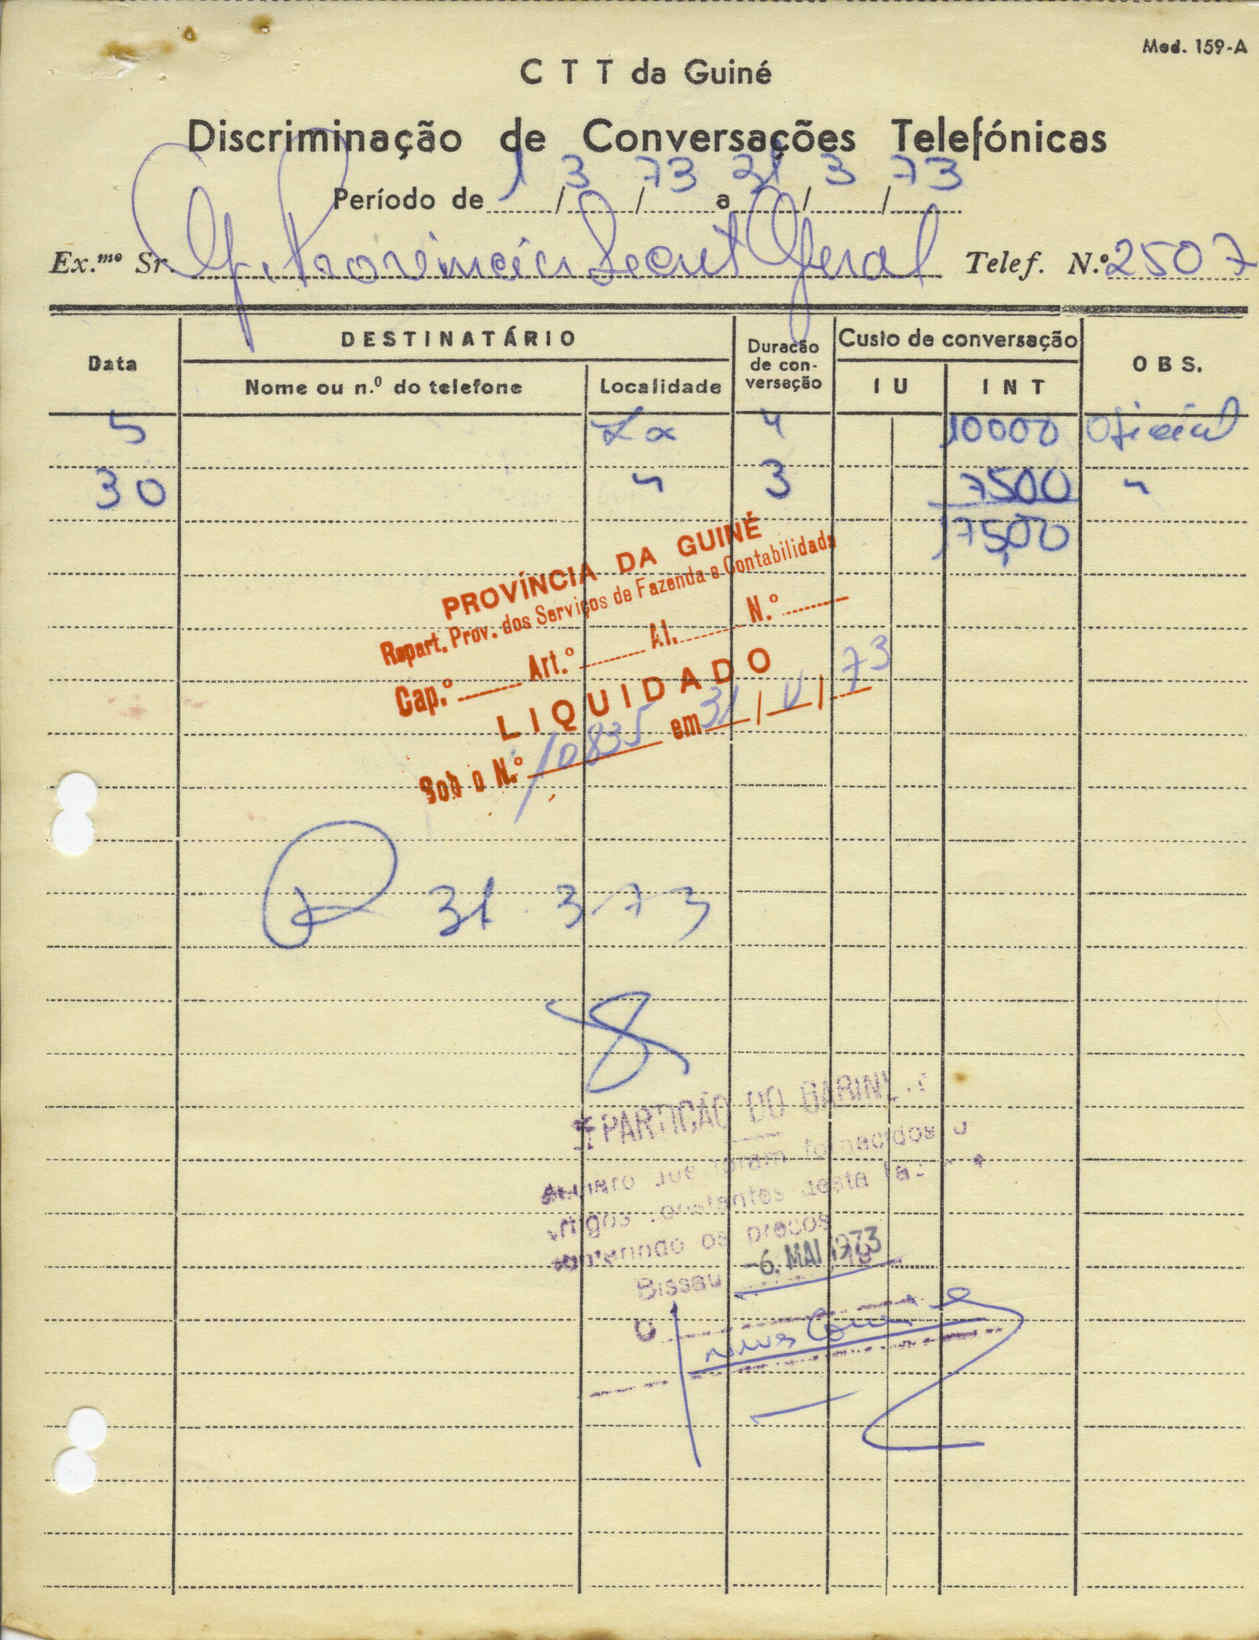 Mod. 159-A
C T T da Guiné
Discriminação de Conversações Telefónicas
Período de 1/3/73 a 31/3/73
Ex.mo Sr. Provincia Secret Geral Telef. N.º 2507
Data DESTINATÁRIO Duração de conversação Custo de conversação OBS.
Nome ou n.º do telefone Localidade I U I N T
5 Lx 4 10000 Oficial
30 " 3 7500 "
17500
PROVÍNCIA DA GUINÉ
Repart. Prov. dos Serviços de Fazenda e Contabilidade
Cap.º Art.º Al. N.º
LIQUIDADO
Sob o N.º 10835 em 31/V/73
31 3 73
PARTIÇÃO DO
que foram fornecidos
artigos constantes desta
os preços
Bissau -6. MAI 1973
O